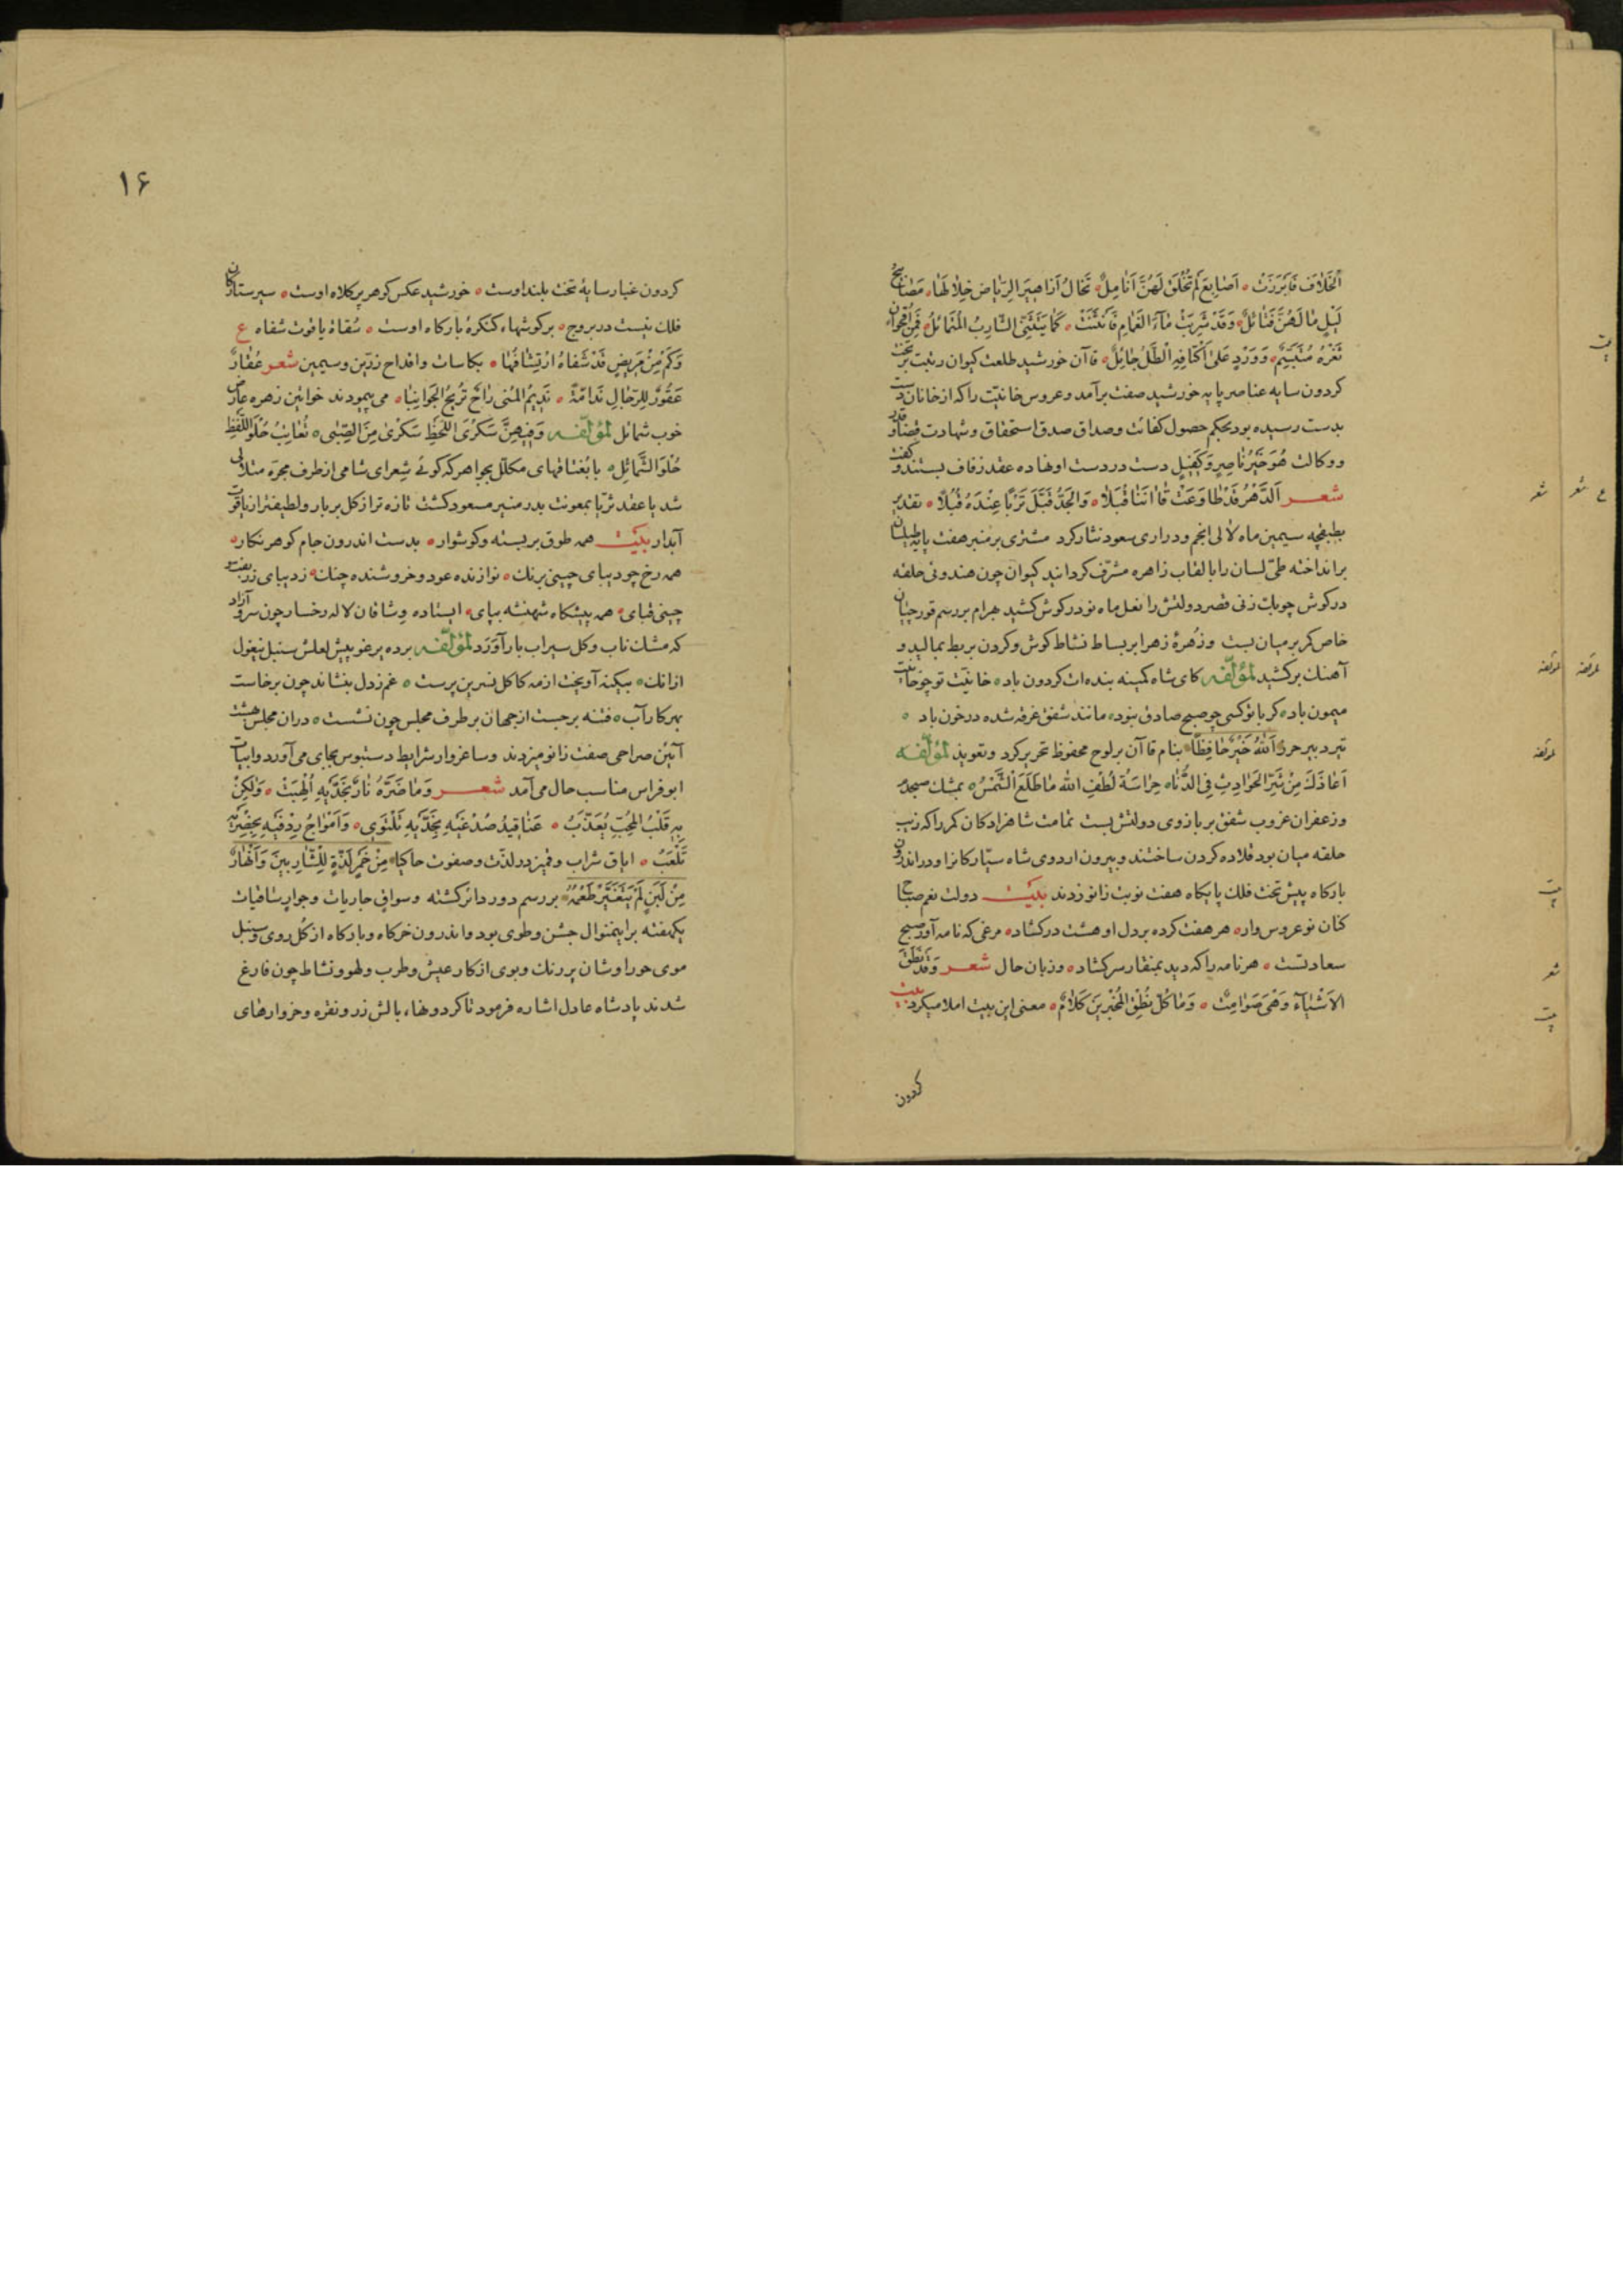 اَلْخِلَافَ فَاَبْرَزَتْ ه اَصَابِعَ لَمْ تُخْلَقْ لَهُنَّ اَنَامِلُ ه تَخَالُ اَزَاهِيرَ الرِّيَاضِ خِلَالَهَا ه مَصَابِيحُ
لَيْلٍ مَا لَهُنَّ فَتَائِلُ ه وَقَدْ شَرِبَتْ مَآءَ الْغَمَامِ فَانْثَنَتْ ه كَمَا يَنْثَنِي الشَّارِبُ الْمُتَمَائِلُ ه فَمِنْ اُقْحُوَانٍ
ثَغْرُهُ مُتَبَسِّمٌ ه وَوَرْدٍ عَلٰى اَكْتَافِهِ الطَّلُّ جَائِلُ ه قاآن خورشید طلعت کیوان رتبت بر تخت
کردون سایه عناصر پایه خورشید صفت برآمد وعروس خانیّت را که از خانان دست
بدست رسیده بود بحکم حصول کفائت وصداق صدق استحقاق وشهادت قضا وقدر
ووکالت هُوَ خَيْرُ نَاصِرٍ وَكَفِيلٍ دست در دست او نهاده عقد زفاف بستند وکفت
شعر اَلدَّهْرُ قَدْ طَاوَعَتْ قَاآنَنَا قُبَلَا ه وَالْجَدُّ قَبَّلَ تَرْبًا عِنْدَهُ قُبُلًا ه تقدیر
بطبقچه سیمین ماه لآلی انجم ودراری سعود نثار کرد مشتری بر منبر هفت پایه طیلسان
برانداخته طیّ لسان را بالقاب زاهره مشرّف کردانید کیوان چون هندوئی حلقه
درکوش چوبک زنی قصر دولتش را نعل ماه نو در کوش کشید بهرام بر رسم قورچیان
خاص کمر بر میان بست وزُهرۀ زهرا بر بساط نشاط کوش وکردن بربط بمالید و
آهنک برکشید لمؤلّفه کای شاه کمینه بنده ات کردون باد ه خانیّت تو چو خانیت
میمون باد ه کر با تو کسی چو صبح صادق نبود ه مانند شفق غرقه شده در خون باد ه
تیر دبیر حرز اَللهُ خَيْرٌ حَافِظًا بنام قاآن بر لوح محفوظ تحریر کرد وتعویذ لمؤلّفه
اَعَاذَكَ مِنْ شَرِّ الْحَوَادِثِ فِي الدُّنَا ه حِرَاسَةُ لُطْفِ الله مَا طَلَعَ الشَّمْسُ ه بمشک صبحدم
وزعفران غروب شفق بر بازوی دولتش بست تمامت شاهزادکان کمر را که زیب
حلقه میان بود قلاده کردن ساختند وبیرون اردوی شاه سیّارکان را ودر اندرون
بارکاه پیش تخت فلک پایکاه هفت نوبت زانو زدند بیت دولت نعم صباح
کنان نو عروس وار ه هر هفت کرده بر دل او هشت در کشاد ه مرغی که نامه آور صبح
سعادتست ه هر نامه را که دید بمنقار سر کشاد ه وزبان حال شعر وَقَدْ نَطَقَ
الْاَشْيَآءُ وَهْىَ صَوَامِتٌ ه وَمَا كُلُّ نُطْقِ الْمُخْبِرِينَ كَلَامٌ ه معنی این بیت املا میکرد بیت
کردون
۱۶
کردون غبار سایۀ تخت بلند اوست ه خورشید عکس کوهر پر کلاه اوست ه سیر ستارکان
فلک نیست در بروج ه بر کوشهاء کنکرۀ بارکاه اوست ه سُقاة یاقوت شفاه ع
وَكَمْ مِنْ مَرِيضٍ قَدْ شَفَاهُ ارْتِشَافُهَا ه بکاسات واقداح زرّین وسیمین شعر عُقَارٌ
عَقُورٌ لِلرِّجَالِ نَدَامَةً ه نَدِيمُ الْمُنٰى رَاحٌ تُرِيحُ الْجَوَانِبَا ه می پیمودند خواتین زهره عارض
خوب شمائل لمؤلّفه وَفِيهِنَّ سَكْرَى اللَّحْظِ سَكْرٰى مِنَ الصِّبٰى ه تُعَاتِبُ حُلْوَ اللَّفْظِ
حُلْوَ الشَّمَائِلِ ه با بُغتاقهای مکلّل بجواهر که کوئی شِعرای شامی از طرف مجرّه متلألی
شد یا عقد ثریّا بمعونت بدر منیر مسعود کشت تازه تر از کل بر بار ولطیفتر از یاقوت
آبدار بیت همه طوق بربسته وکوشوار ه بدست اندرون جام کوهر نکار ه
همه رخ چو دیبای چینی برنک ه نوازنده عود وخروشنده چنک ه ز دیبای زربفت
چینی قبای ه همه پیشکاه شهنشه بپای ه ایستاده وشاقان لاله رخسار چون سرو آزاد
که مشک ناب وکل سیراب بار آوَرَد لمؤلّفه برده یرغو پیش لعلش سنبل نیغول
از انک ه بیکنه آویخت از مه کاکل نسرین پرست ه غم ز دل بنشاند چون برخاست
بهر کار آب ه فتنه برجست از جهان بر طرف مجلس چون نشست ه دران مجلس بهشت
آئین صراحی صفت زانو میزدند وساغروار شرایط دستبوس بجای می آورد وابیات
ابوفراس مناسب حال می آمد شعر وَمَا ضَرَّهُ نَارٌ بِخَدَّيْهِ اُلْهِبَتْ ه وَلٰكِنْ
بِهِ قَلْبُ الْمُحِبِّ يُعَذَّبُ ه عَنَاقِيدُ صُدْغَيْهِ بِخَدَّيْهِ تَلْتَوِي ه وَاَمْوَاجُ رِدْفَيْهِ بِخِصْرَيْهِ
تَلْعَبُ ه ایاق شراب وقمیز در لذّت وصفوت حاکیا مِنْ خَمْرٍ لَذَّةٍ لِلشَّارِبِينَ وَاَنْهَارٌ
مِنْ لَبَنٍ لَمْ يَتَغَيَّرْ طَعْمُهُ بر رسم دور دائر کشته وسواقی جاریات وجواری ساقیات
یکهفته براینمنوال جشن وطوی بود واندرون خرکاه وبارکاه از کُل روی وسنبل
موی حوراوشان پر رنک وبوی از کار عیش وطرب ولهو ونشاط چون فارغ
شدند پادشاه عادل اشاره فرمود تا کردونها، بالش زر ونقره وخروارهای